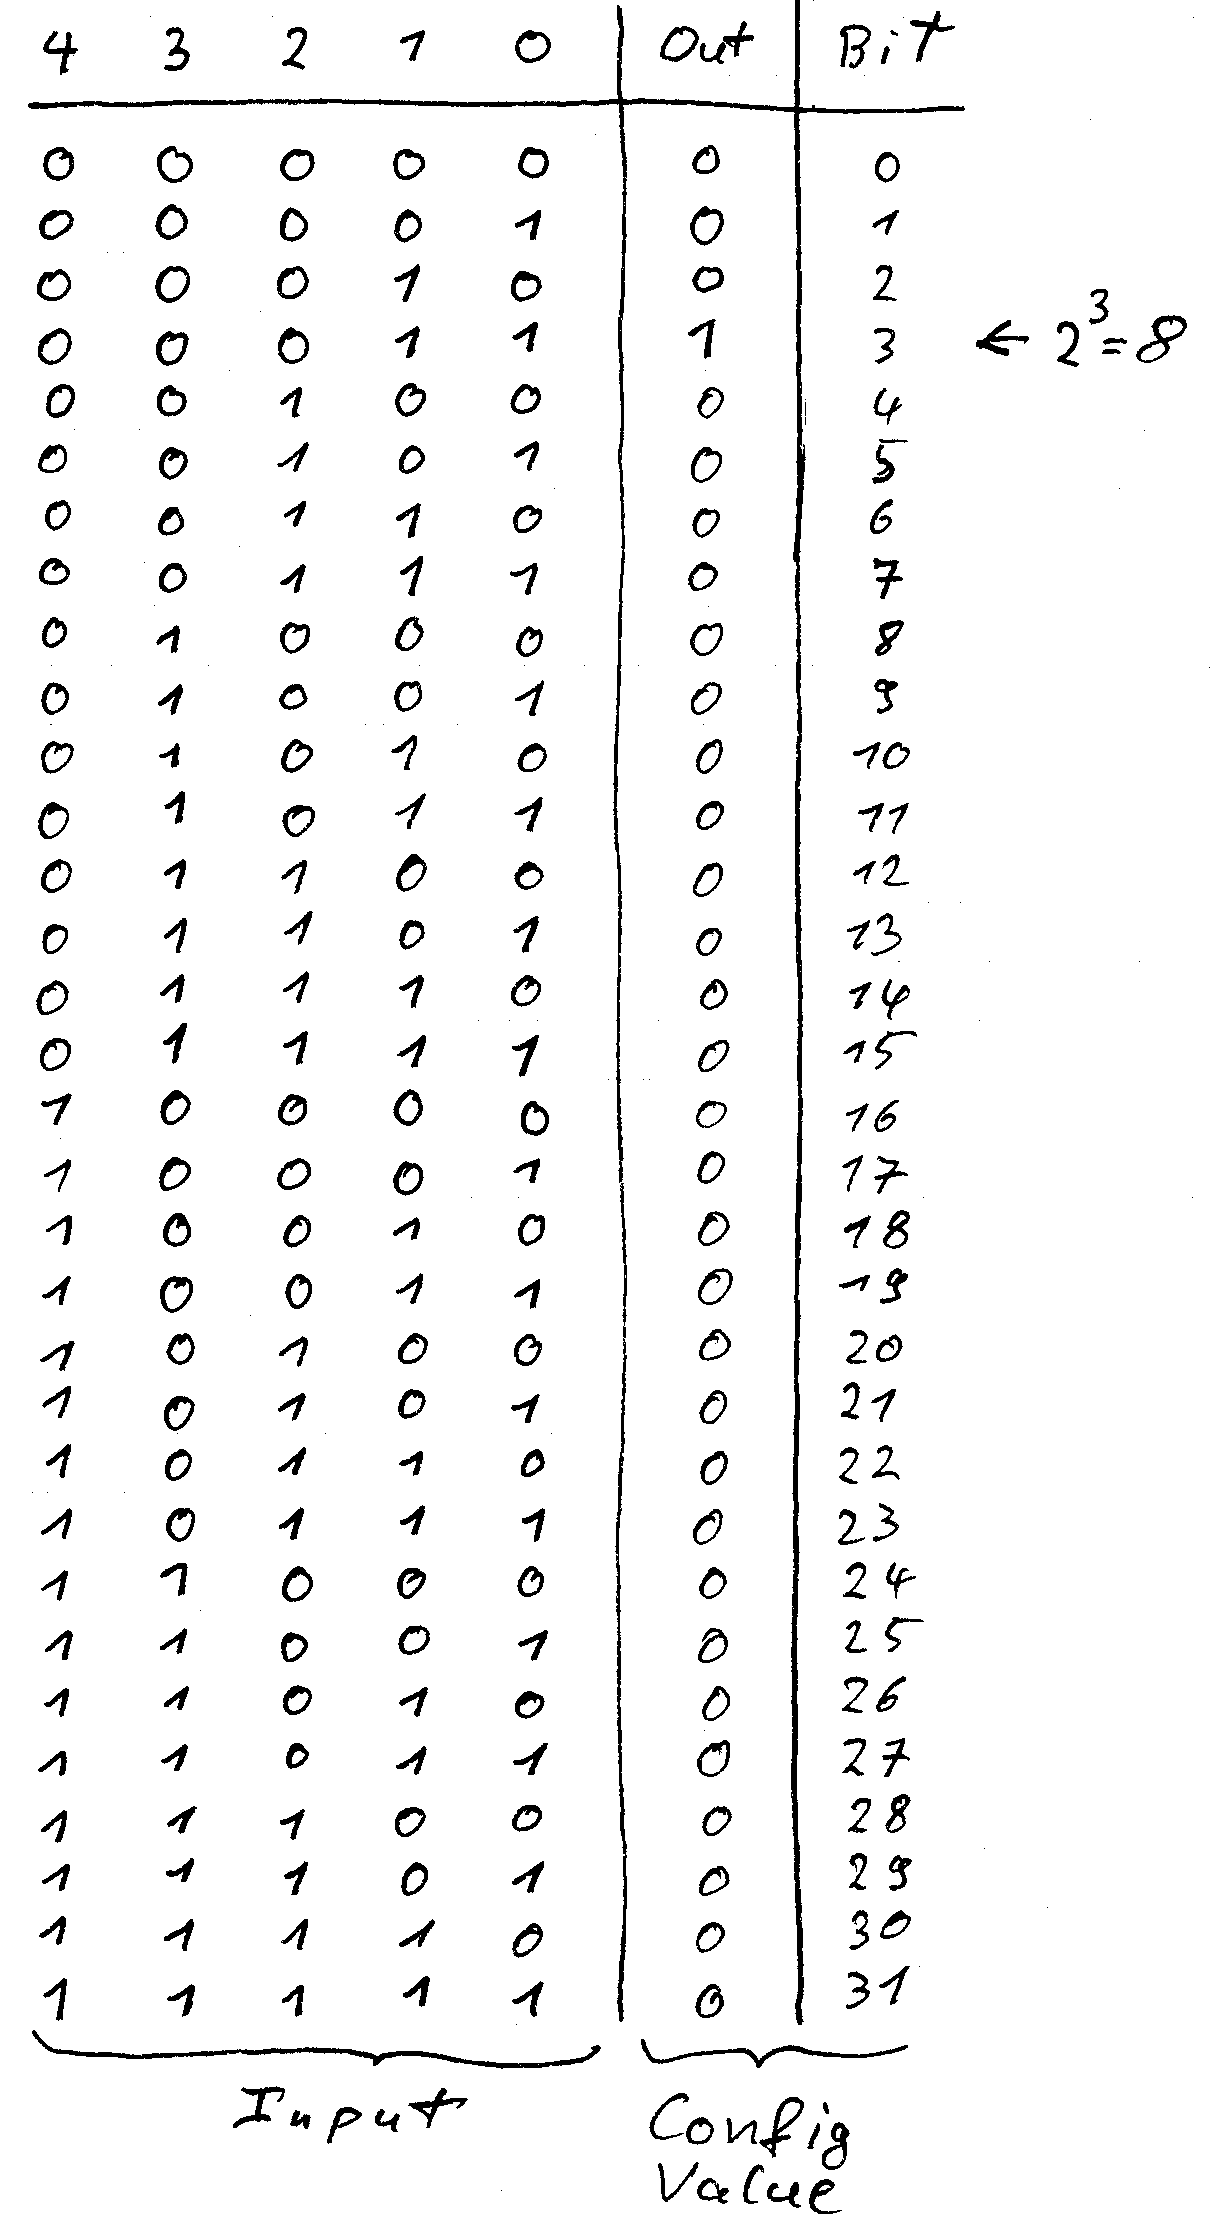 4 3 2 1 0 Out Bit
0 0 0 0 0 0 0
0 0 0 0 1 0 1
0 0 0 1 0 0 2
0 0 0 1 1 1 3 ← 2³=8
0 0 1 0 0 0 4
0 0 1 0 1 0 5
0 0 1 1 0 0 6
0 0 1 1 1 0 7
0 1 0 0 0 0 8
0 1 0 0 1 0 9
0 1 0 1 0 0 10
0 1 0 1 1 0 11
0 1 1 0 0 0 12
0 1 1 0 1 0 13
0 1 1 1 0 0 14
0 1 1 1 1 0 15
1 0 0 0 0 0 16
1 0 0 0 1 0 17
1 0 0 1 0 0 18
1 0 0 1 1 0 19
1 0 1 0 0 0 20
1 0 1 0 1 0 21
1 0 1 1 0 0 22
1 0 1 1 1 0 23
1 1 0 0 0 0 24
1 1 0 0 1 0 25
1 1 0 1 0 0 26
1 1 0 1 1 0 27
1 1 1 0 0 0 28
1 1 1 0 1 0 29
1 1 1 1 0 0 30
1 1 1 1 1 0 31
Input Config
Value